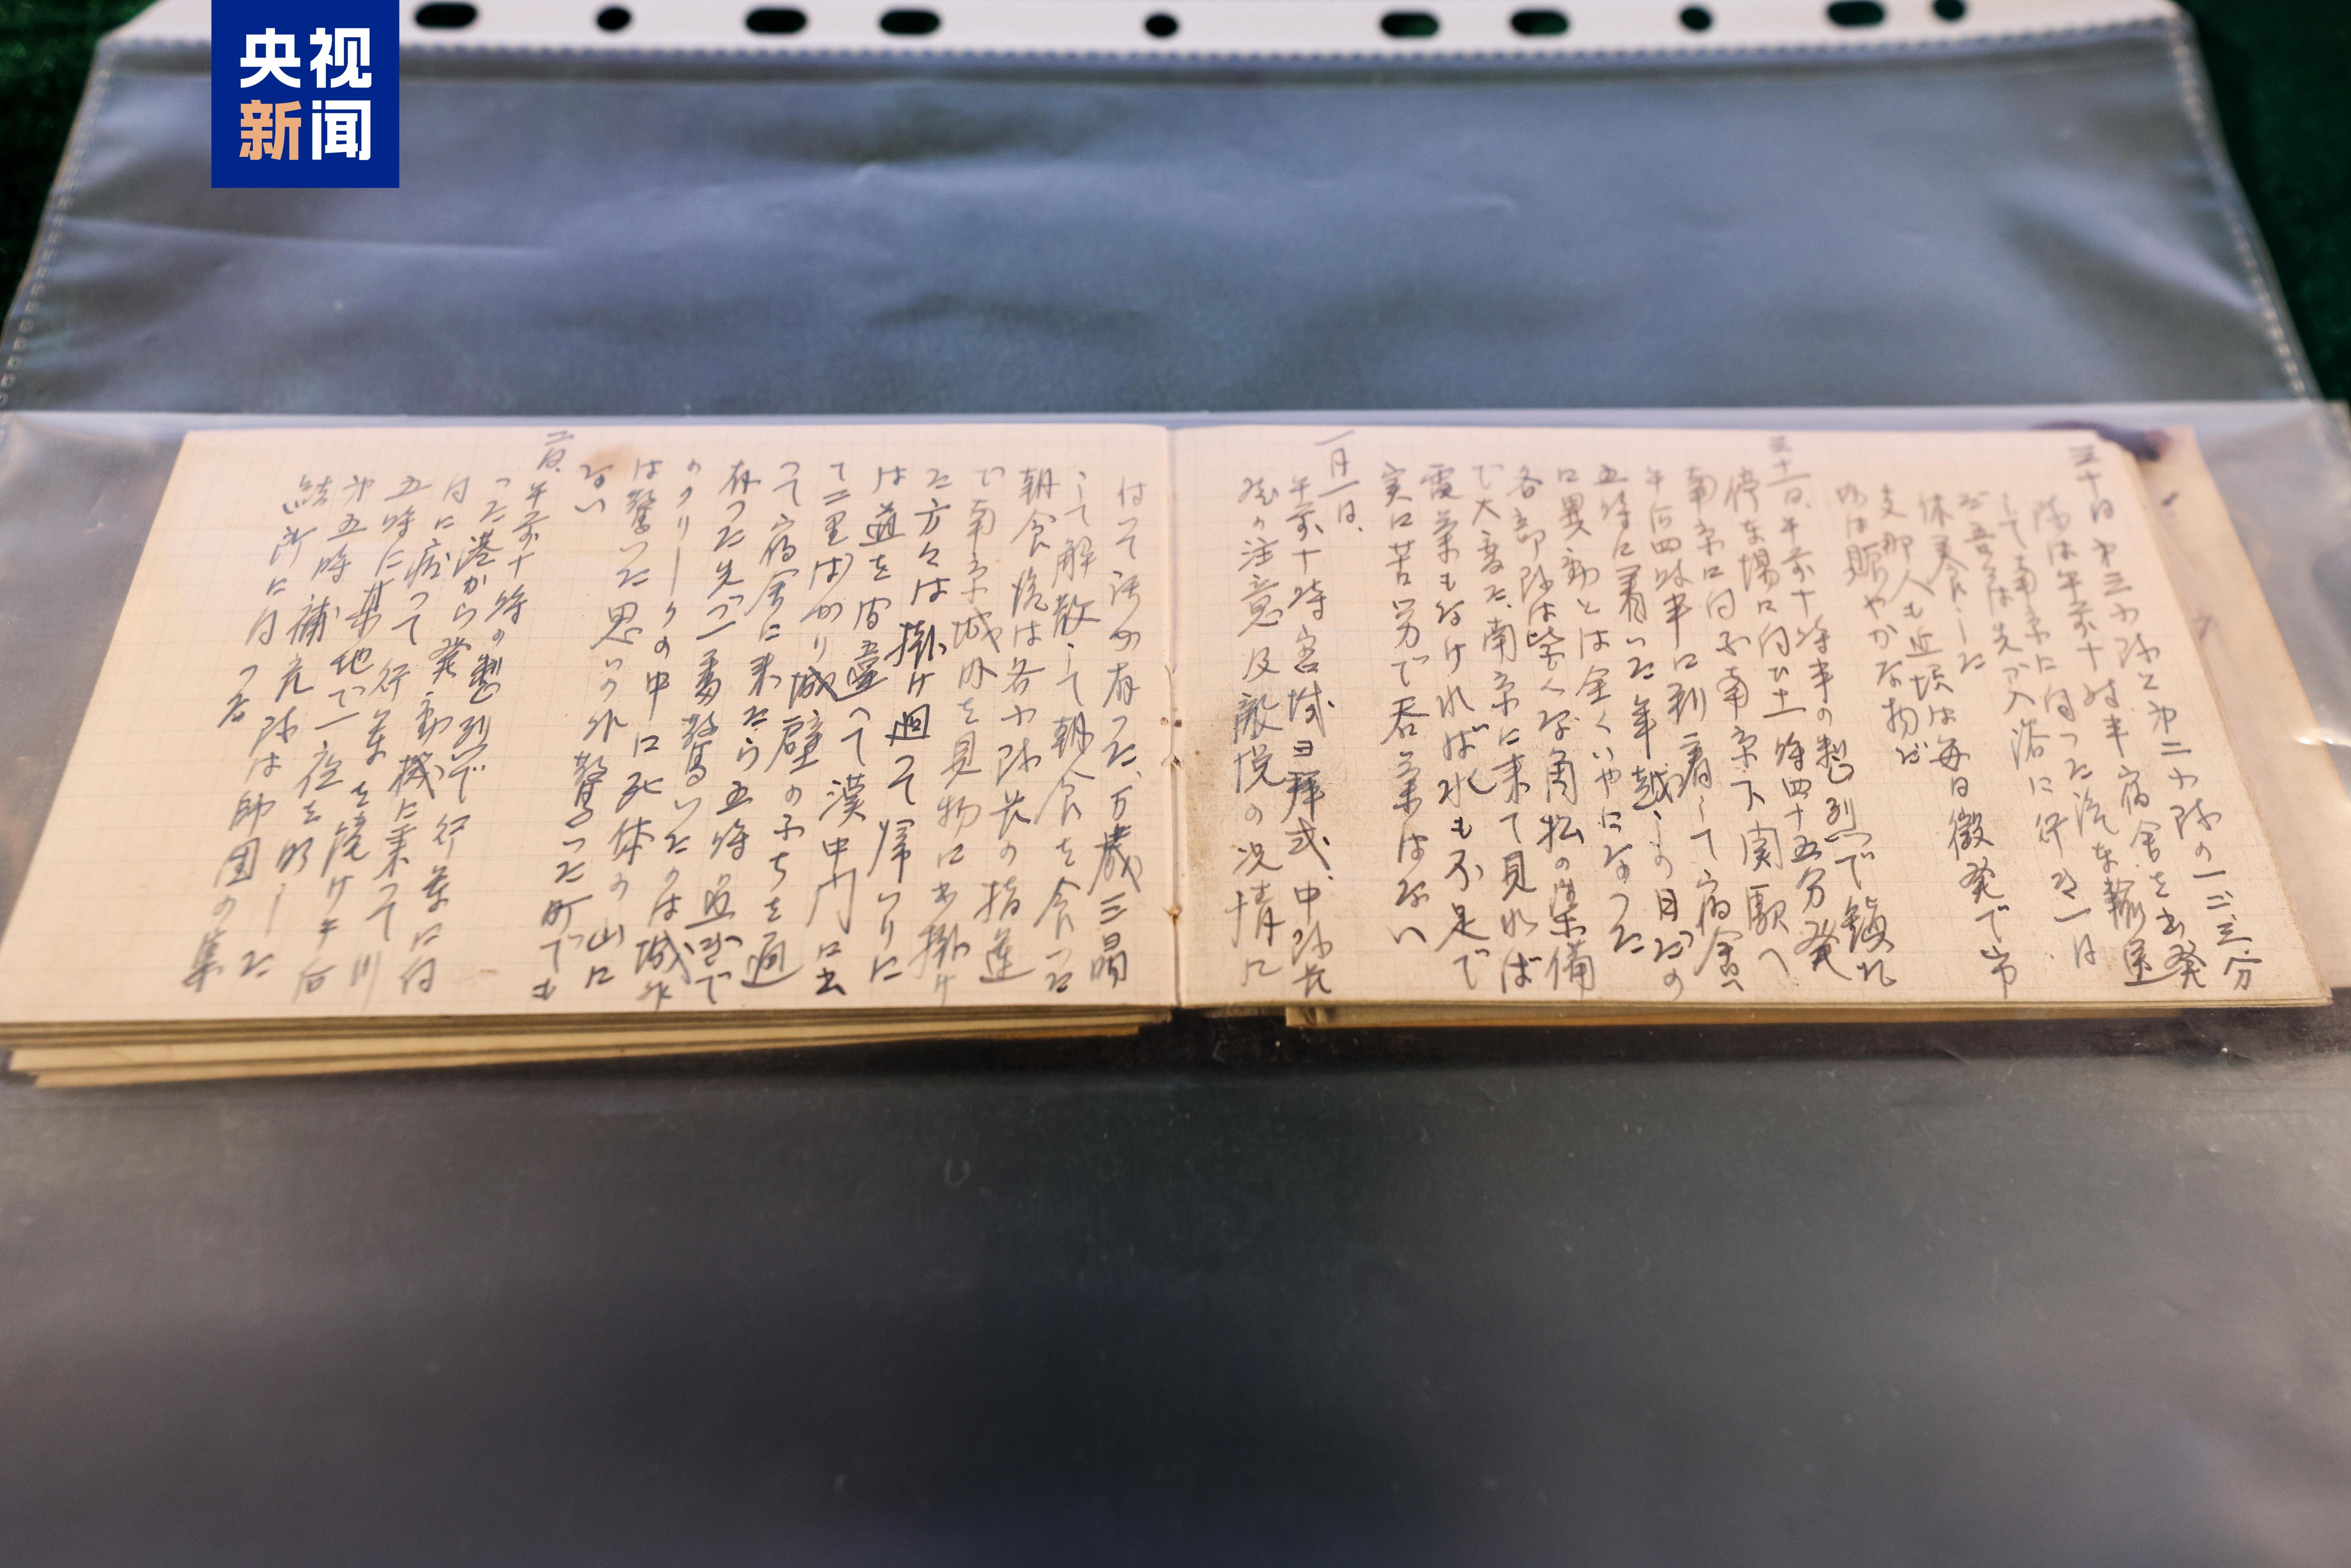 央视
新闻
三十日 第三小隊と第二小隊の一二三分
隊は午前十時半宿舎を出発
して南京に向つた汽車輸送
だ 吾等は先ヅ入浴に行き一日
休養した
支那人も近頃は毎日徴発で市
場は賑やかな物だ
三十一日 午前十時半の整列で
停車場に向ひ十一時四十五分発
南京に向ふ南京下関駅へ
午后四時半に到着して宿舎へ
五時に着いた年越しの日だの
に異動とは全くいやになつた
各部隊は皆んな角松の準備
で大変だ、南京に来て見れば
電気もなければ水も不足で
実に苦労で呑気はない
一月一日、
午前十時宮城ヨ拝式、中隊長
殿の注意及敵境の況情に
はて話が有つた、万歳三唱
して解散して朝食を食つた
朝食后は各小隊長の指導
で南京城内を見物に出掛け
た方々は掛け廻つて帰いりに
は道を間違へて漢中門に出
て二里ばかり城壁のふちを廻
つて宿舎に来たら五時近くで
有つた先づ一番驚いたのは城外
のクリークの中に死体の山に
は驚いた思いの外驚つた町でも
ない
二日、午前十時の整列で行軍に向
つた港から発動機に乗つて川
向に痞つて行軍を続け午后
五時に某地で一夜を明した
第五時補充隊は師団の集
結所に向つた